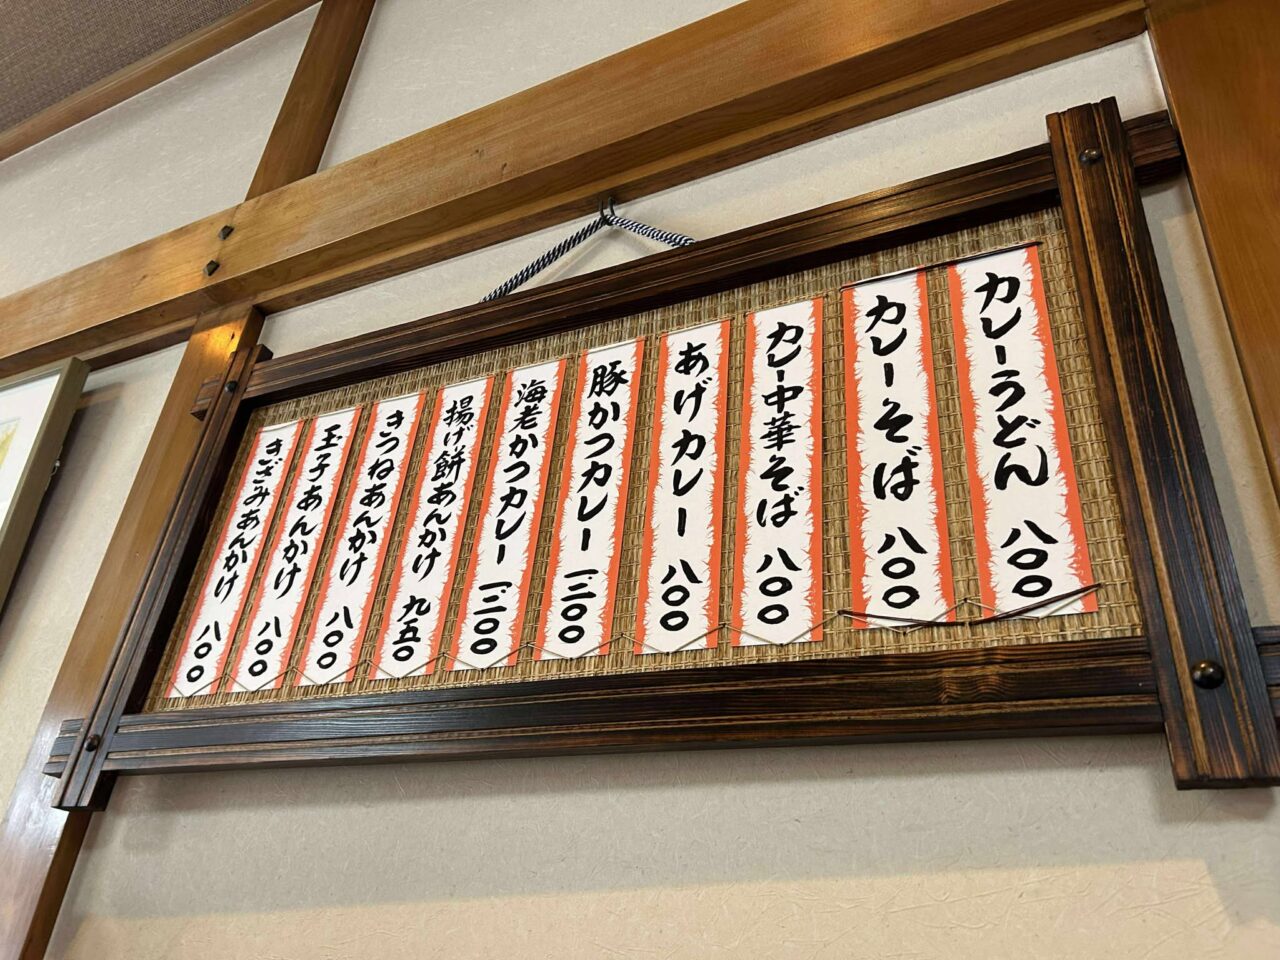 カレーうどん 八〇〇
カレーそば 八〇〇
カレー中華そば 八〇〇
あげカレー 八〇〇
豚かつカレー 一、二〇〇
海老かつカレー 一、二〇〇
揚げ餅あんかけ 九五〇
きつねあんかけ 八〇〇
玉子あんかけ 八〇〇
きざみあんかけ 八〇〇